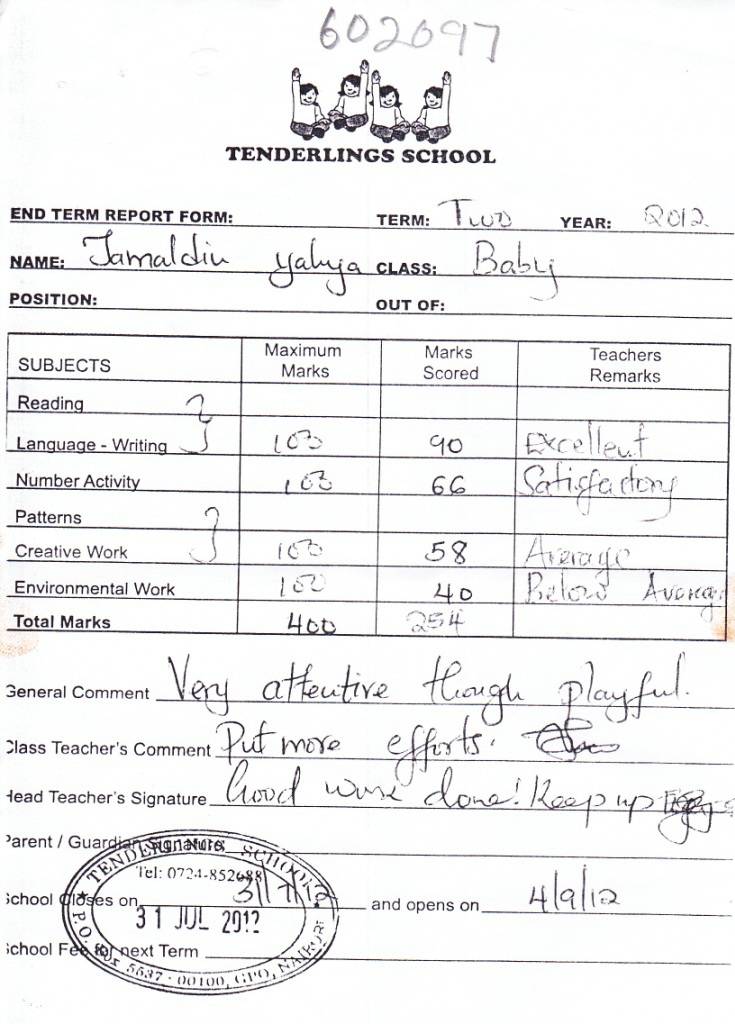 602097
TENDERLINGS SCHOOL
END TERM REPORT FORM: TERM: Two YEAR: 2012
NAME: Jamaldin Yahya CLASS: Baby
POSITION: OUT OF:
SUBJECTS Maximum Marks Marks Scored Teachers Remarks
Reading
Language - Writing 100 90 Excellent
Number Activity 100 66 Satisfactory
Patterns
Creative Work 100 58 Average
Environmental Work 100 40 Below Average
Total Marks 400 254
General Comment Very attentive though playful.
Class Teacher's Comment Put more efforts.
Head Teacher's Signature Good work done! Keep up
Parent / Guardian Signature
TENDERLINGS SCHOOL
Tel: 0724-852688
School Closes on 31/7/12 and opens on 4/9/12
31 JUL 2012
School Fee for next Term
P.O. Box 5637 - 00100, GPO, NAIROBI